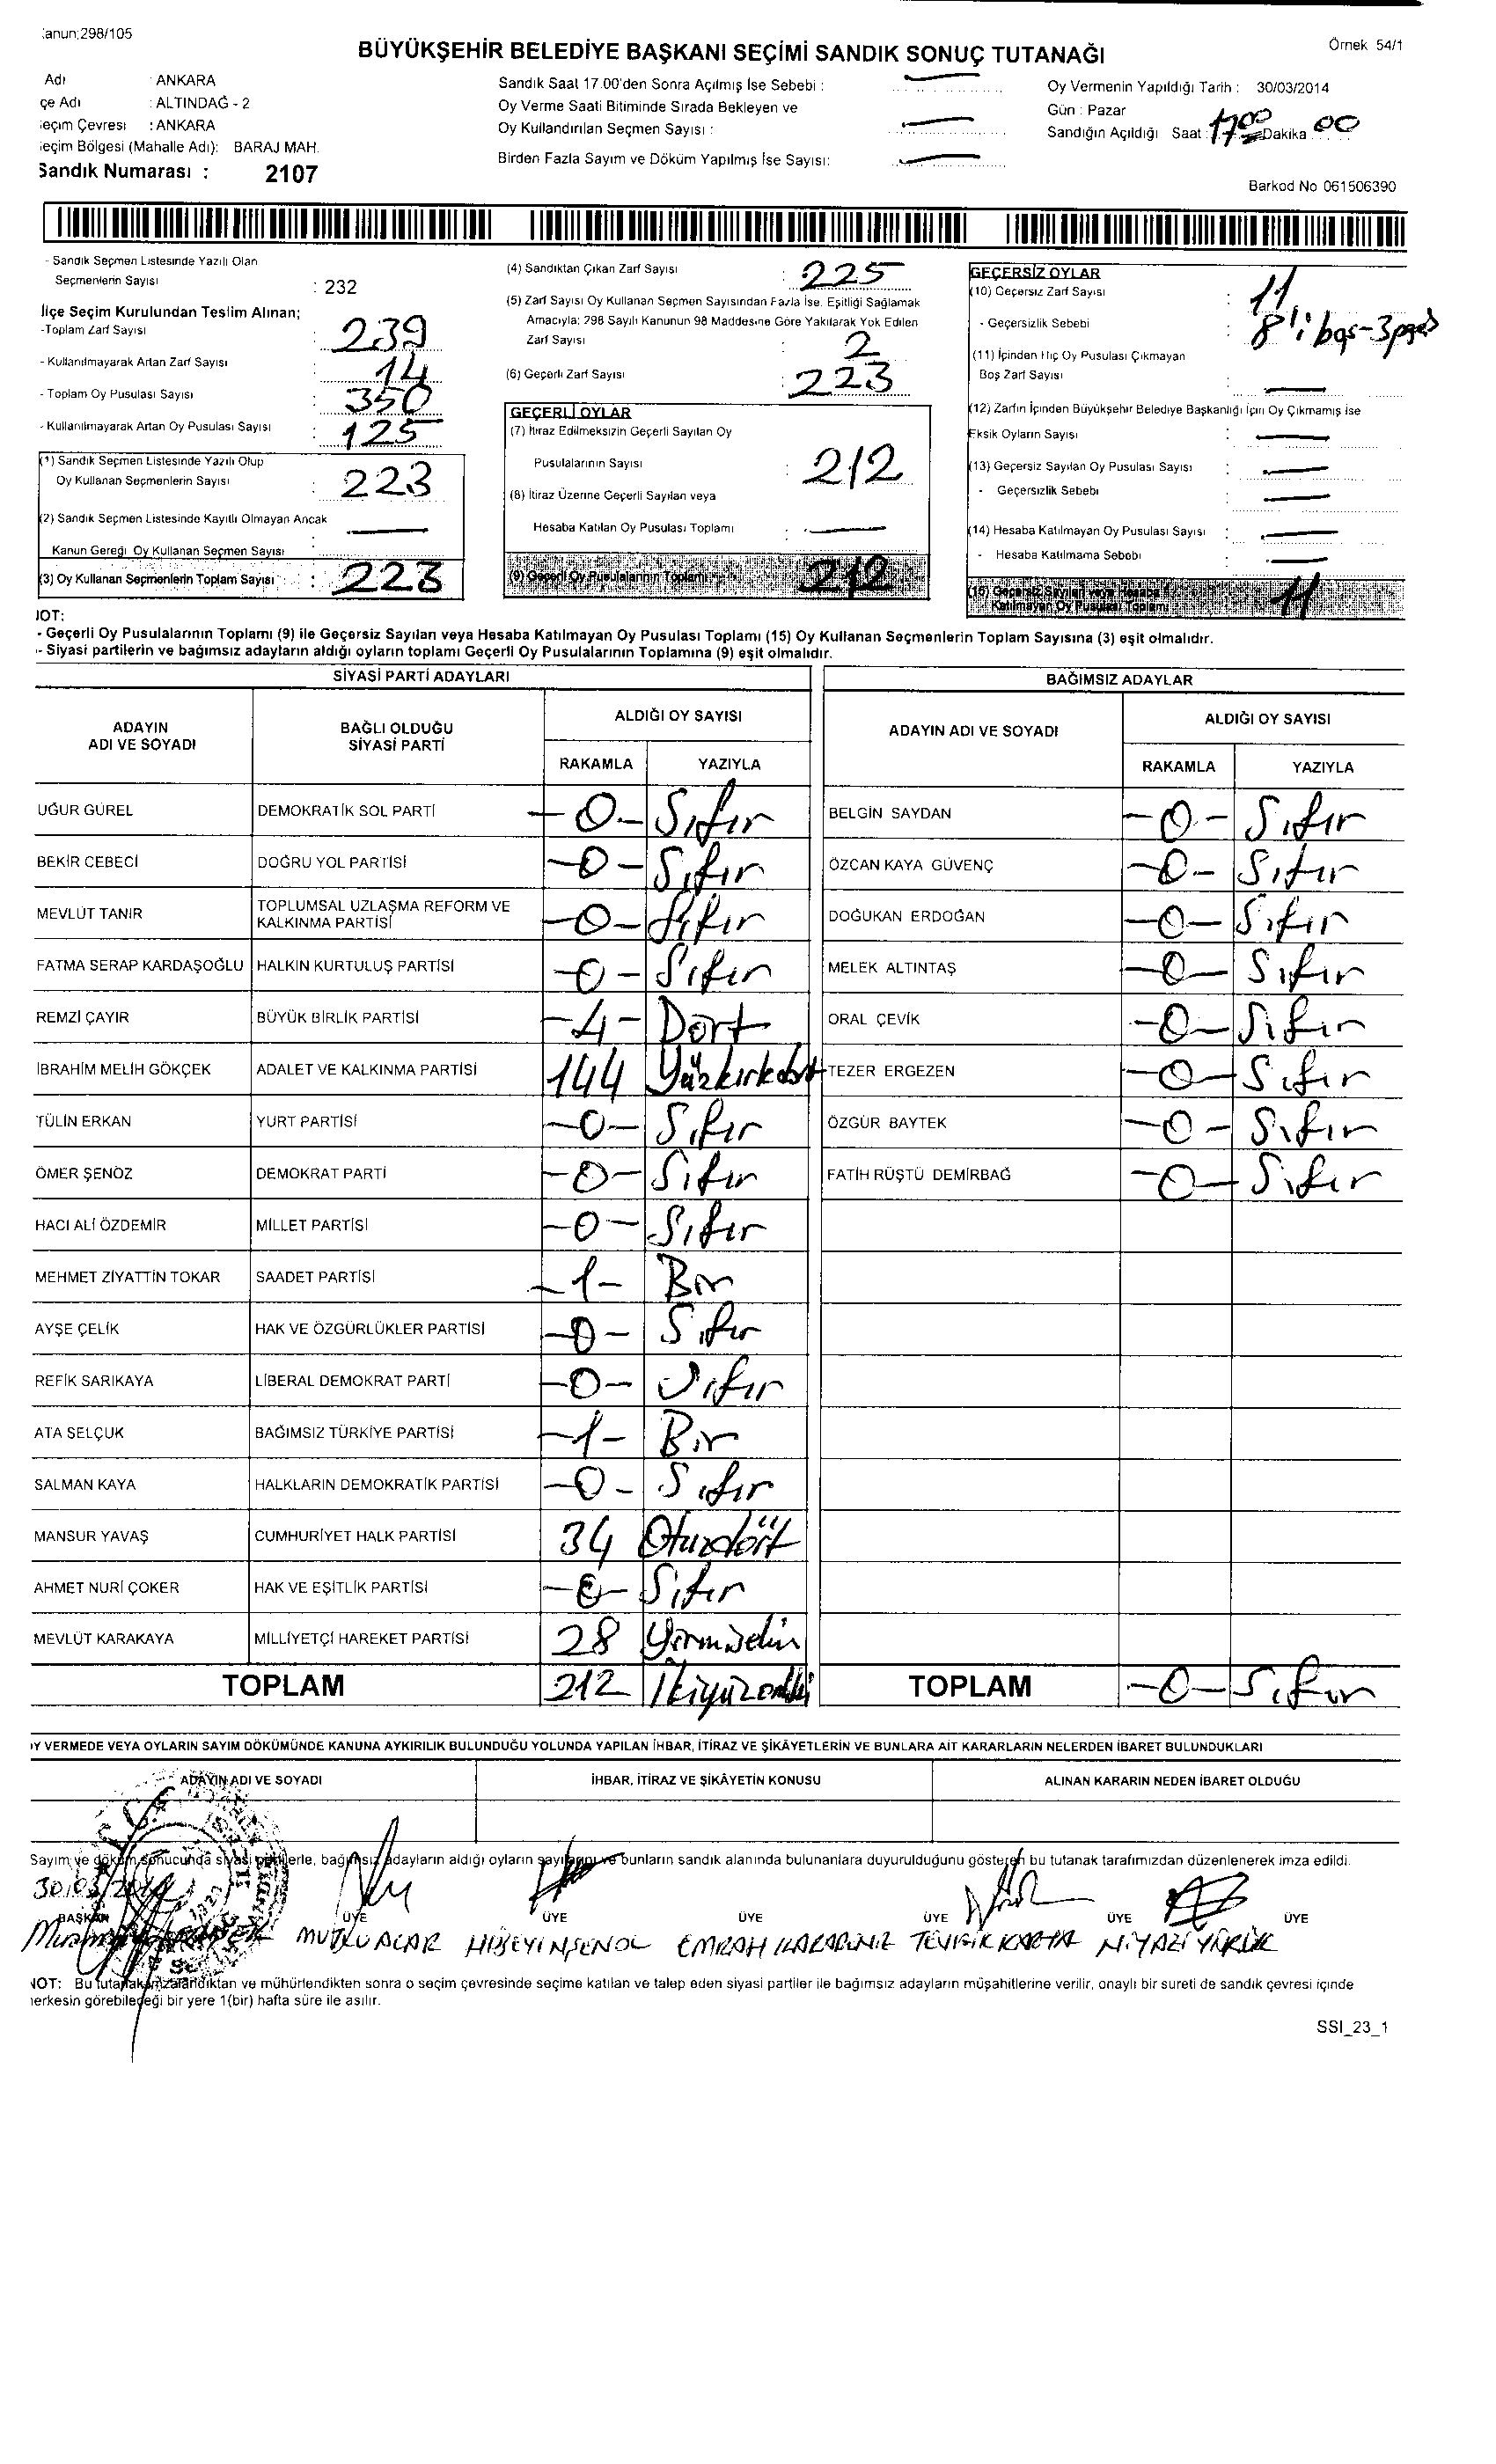 anun:298/105
Örnek 54/1
BÜYÜKŞEHİR BELEDİYE BAŞKANI SEÇİMİ SANDIK SONUÇ TUTANAĞI
Adı : ANKARA
çe Adı : ALTINDAĞ - 2
eçim Çevresi : ANKARA
eçim Bölgesi (Mahalle Adı): BARAJ MAH.
Sandık Numarası : 2107
Sandık Saat 17.00'den Sonra Açılmış İse Sebebi :
Oy Verme Saati Bitiminde Sırada Bekleyen ve
Oy Kullandırılan Seçmen Sayısı :
Birden Fazla Sayım ve Döküm Yapılmış İse Sayısı:
Oy Vermenin Yapıldığı Tarih : 30/03/2014
Gün : Pazar
Sandığın Açıldığı Saat : 1700 Dakika 00
Barkod No 061506390
- Sandık Seçmen Listesinde Yazılı Olan
Seçmenlerin Sayısı : 232
İlçe Seçim Kurulundan Teslim Alınan;
-Toplam Zarf Sayısı : 239
- Kullanılmayarak Artan Zarf Sayısı : 14
- Toplam Oy Pusulası Sayısı : 350
- Kullanılmayarak Artan Oy Pusulası Sayısı : 125
(1) Sandık Seçmen Listesinde Yazılı Olup
Oy Kullanan Seçmenlerin Sayısı : 223
(2) Sandık Seçmen Listesinde Kayıtlı Olmayan Ancak
Kanun Gereği Oy Kullanan Seçmen Sayısı :
(3) Oy Kullanan Seçmenlerin Toplam Sayısı : 223
(4) Sandıktan Çıkan Zarf Sayısı : 225
(5) Zarf Sayısı Oy Kullanan Seçmen Sayısından Fazla İse, Eşitliği Sağlamak
Amacıyla; 298 Sayılı Kanunun 98 Maddesine Göre Yakılarak Yok Edilen
Zarf Sayısı : 2
(6) Geçerli Zarf Sayısı : 223
GEÇERLİ OYLAR
(7) İtiraz Edilmeksizin Geçerli Sayılan Oy
Pusulalarının Sayısı : 212
(8) İtiraz Üzerine Geçerli Sayılan veya
Hesaba Katılan Oy Pusulası Toplamı : -
(9) Geçerli Oy Pusulalarının Toplamı : 212
GEÇERSİZ OYLAR
(10) Geçersiz Zarf Sayısı : 11
- Geçersizlik Sebebi : 8'i boş-3
(11) İçinden Hiç Oy Pusulası Çıkmayan
Boş Zarf Sayısı : -
(12) Zarfın İçinden Büyükşehir Belediye Başkanlığı İçin Oy Çıkmamış ise
Eksik Oyların Sayısı : -
(13) Geçersiz Sayılan Oy Pusulası Sayısı : -
- Geçersizlik Sebebi : -
(14) Hesaba Katılmayan Oy Pusulası Sayısı : -
- Hesaba Katılmama Sebebi : -
(15) Geçersiz Sayılan veya Hesaba
Katılmayan Oy Pusulası Toplamı : 11
NOT:
- Geçerli Oy Pusulalarının Toplamı (9) ile Geçersiz Sayılan veya Hesaba Katılmayan Oy Pusulası Toplamı (15) Oy Kullanan Seçmenlerin Toplam Sayısına (3) eşit olmalıdır.
- Siyasi partilerin ve bağımsız adayların aldığı oyların toplamı Geçerli Oy Pusulalarının Toplamına (9) eşit olmalıdır.
SİYASİ PARTİ ADAYLARI
ADAYIN ADI VE SOYADI BAĞLI OLDUĞU SİYASİ PARTİ ALDIĞI OY SAYISI
RAKAMLA YAZIYLA
UĞUR GÜREL DEMOKRATİK SOL PARTİ -0- Sıfır
BEKİR CEBECİ DOĞRU YOL PARTİSİ -0- Sıfır
MEVLÜT TANIR TOPLUMSAL UZLAŞMA REFORM VE KALKINMA PARTİSİ -0- Sıfır
FATMA SERAP KARDAŞOĞLU HALKIN KURTULUŞ PARTİSİ -0- Sıfır
REMZİ ÇAYIR BÜYÜK BİRLİK PARTİSİ -4- Dört
İBRAHİM MELİH GÖKÇEK ADALET VE KALKINMA PARTİSİ 144 Yüzkırkdört
TÜLİN ERKAN YURT PARTİSİ -0- Sıfır
ÖMER ŞENÖZ DEMOKRAT PARTİ -0- Sıfır
HACI ALİ ÖZDEMİR MİLLET PARTİSİ -0- Sıfır
MEHMET ZİYATTİN TOKAR SAADET PARTİSİ -1- Bir
AYŞE ÇELİK HAK VE ÖZGÜRLÜKLER PARTİSİ -0- Sıfır
REFİK SARIKAYA LİBERAL DEMOKRAT PARTİ -0- Sıfır
ATA SELÇUK BAĞIMSIZ TÜRKİYE PARTİSİ -1- Bir
SALMAN KAYA HALKLARIN DEMOKRATİK PARTİSİ -0- Sıfır
MANSUR YAVAŞ CUMHURİYET HALK PARTİSİ 34 Otuzdört
AHMET NURİ ÇOKER HAK VE EŞİTLİK PARTİSİ -0- Sıfır
MEVLÜT KARAKAYA MİLLİYETÇİ HAREKET PARTİSİ 28 Yirmisekiz
TOPLAM 212 İkiyüzoniki
BAĞIMSIZ ADAYLAR
ADAYIN ADI VE SOYADI ALDIĞI OY SAYISI
RAKAMLA YAZIYLA
BELGİN SAYDAN -0- Sıfır
ÖZCAN KAYA GÜVENÇ -0- Sıfır
DOĞUKAN ERDOĞAN -0- Sıfır
MELEK ALTINTAŞ -0- Sıfır
ORAL ÇEVİK -0- Sıfır
TEZER ERGEZEN -0- Sıfır
ÖZGÜR BAYTEK -0- Sıfır
FATİH RÜŞTÜ DEMİRBAĞ -0- Sıfır
TOPLAM -0- Sıfır
OY VERMEDE VEYA OYLARIN SAYIM DÖKÜMÜNDE KANUNA AYKIRILIK BULUNDUĞU YOLUNDA YAPILAN İHBAR, İTİRAZ VE ŞİKÂYETLERİN VE BUNLARA AİT KARARLARIN NELERDEN İBARET BULUNDUKLARI
ADAYIN ADI VE SOYADI İHBAR, İTİRAZ VE ŞİKÂYETİN KONUSU ALINAN KARARIN NEDEN İBARET OLDUĞU
Sayım ve döküm sonucunda siyasi partilerle, bağımsız adayların aldığı oyların sayılarını ve bunların sandık alanında bulunanlara duyurulduğunu gösteren bu tutanak tarafımızdan düzenlenerek imza edildi.
30/03/2014
BAŞKAN ÜYE ÜYE ÜYE ÜYE ÜYE ÜYE
MUTLU ACAR HÜSEYİN ŞENOL EMRAH KARADENİZ TEVFİK KARTA NİYAZİ YÜRÜK
NOT: Bu tutanak imzalandıktan ve mühürlendikten sonra o seçim çevresinde seçime katılan ve talep eden siyasi partiler ile bağımsız adayların müşahitlerine verilir, onaylı bir sureti de sandık çevresi içinde
herkesin görebileceği bir yere 1(bir) hafta süre ile asılır.
SSI_23_1